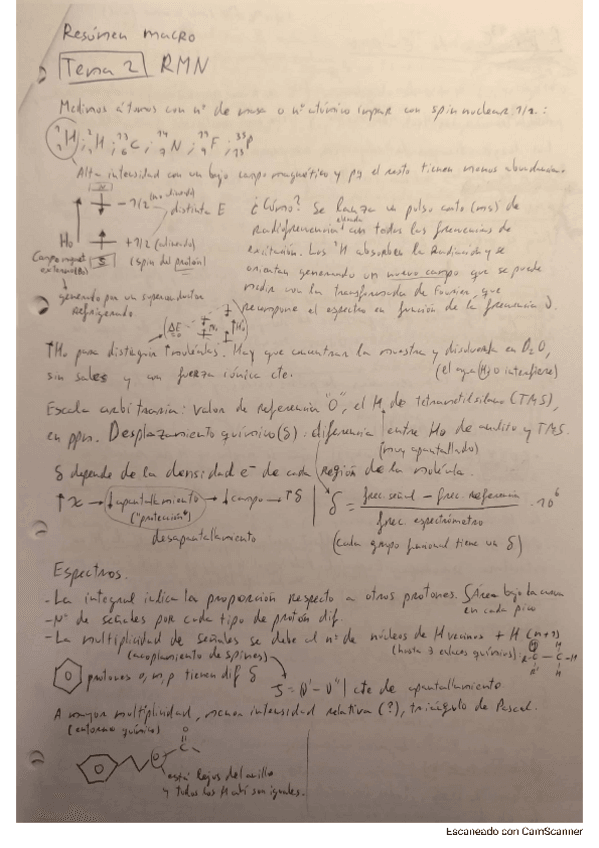 Resúmen macro
Tema 2 RMN
Medimos átomos con nº de masa o nº atómico impar con spin nuclear 1/2:
¹₁H; ²₁H; ¹³₆C; ¹⁴₇N; ¹⁹₉F; ³⁵₁₅P
Alta intensidad con un bajo campo magnético y pq el resto tienen menos abundancia.
-1/2 (no alineado)
distinta E
H₀
+1/2 (alineado)
(spin del protón)
Campo magnet
externo
generado por un superconductor
refrigerado
¿Cómo? Se lanza un pulso corto (ms) de
Radiofrecuencia con todas las frecuencias de
excitación. Los ¹H absorben la Radiación y se
orientan generando un nuevo campo que se puede
medir con la transformada de Fourier, que
recompone el espectro en función de la frecuencia ν.
ΔE
↑H₀
↑H₀ para distinguir ↑moléculas. Hay que concentrar la muestra y disolverla en D₂O,
sin sales y con fuerza iónica cte.
(el agua H₂O interfiere)
Escala arbitraria: valor de referencia "0", el H de tetrametilsilano (TMS),
en ppm. Desplazamiento químico (δ): diferencia entre H₀ de analito y TMS.
(muy apantallado)
δ depende de la densidad e⁻ de cada región de la molécula.
↑x → ↓apantallamiento → ↓campo → ↑δ
("protección")
desapantallamiento
δ = frec. señal - frec. referencia / frec. espectrómetro · 10⁶
(cada grupo funcional tiene un δ)
Espectros.
- La integral indica la proporción respecto a otros protones. Área bajo la curva
en cada pico
- Nº de señales por cada tipo de protón dif.
- La multiplicidad de señales se debe al nº de núcleos de H vecinos + H (n+1)
(acoplamiento de spines)
(hasta 3 enlaces químicos)
protones o, m, p tienen dif δ
J = |ν' - ν''| cte de apantallamiento
A mayor multiplicidad, menor intensidad relativa (?), triángulo de Pascal.
(entorno químico)
está lejos del anillo
y todos los H ahí son iguales.
Escaneado con CamScanner